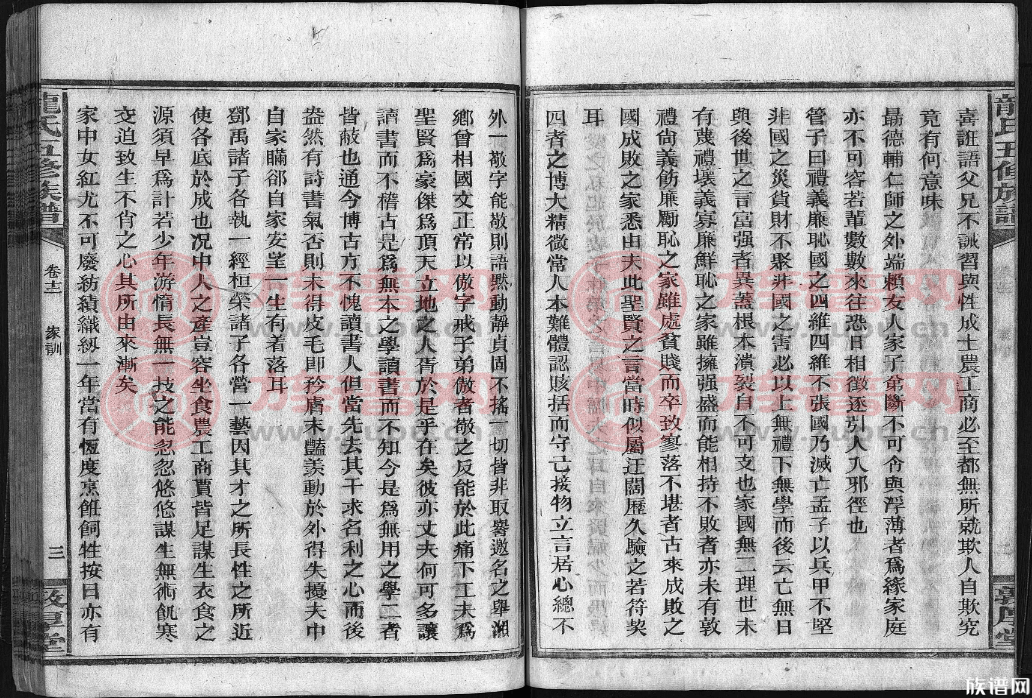 喜誑語父兄不誡習與性成士農工商必至都無所就欺人自欺究
竟有何意味
勗德輔仁師之外端賴友人家子弟斷不可令與浮薄者爲緣家庭
亦不可容若輩數數來往恐日相徵逐引人入邪徑也
管子曰禮義廉恥國之四維四維不張國乃滅亡孟子以兵甲不堅
非國之災貨財不聚非國之害必以上無禮下無學而後云亡無日
與後世之言富强者異蓋根本潰裂自不可支也家國無二理世未
有蔑禮壞義寡廉鮮恥之家雖擁强盛而能相持不敗者亦未有敦
禮尙義飭廉勵恥之家雖處貧賤而卒致寥落不堪者古來成敗之
國成敗之家悉由夫此聖賢之言當時似屬迂闊歷久驗之若符契
耳
四者之博大精微常人本難體認賅括而守己接物立言居心總不
外一敬字能敬則語默動靜貞固不搖一切皆非取譽邀名之舉湘
鄉曾相國文正常以傲字戒子弟傲者敬之反能於此痛下工夫爲
聖賢爲豪傑爲頂天立地之人胥於是乎在矣彼亦丈夫何可多讓
讀書而不稽古是爲無本之學讀書而不知今是爲無用之學二者
皆蔽也通今博古方不愧讀書人但當先去其干求名利之心而後
盎然有詩書氣否則未得皮毛即矜膚末豔羡動於外得失擾夫中
自家瞞卻自家安望一生有着落耳
鄧禹諸子各執一經桓榮諸子各嘗一藝因其才之所長性之所近
使各底於成也况中人之產豈容坐食農工商賈皆足謀生衣食之
源須早爲計若少年游惰長無一技之能忽忽悠悠謀生無術飢寒
交迫致生不肖之心其所由來漸矣
家中女紅尤不可廢紡績織紉一年當有恆度烹飪飼牲按日亦有
龍氏五修族譜
卷十二
家訓
三
敦厚堂
龍氏五修族譜
敦厚堂
万姓谱网
www.xupu.cn
族谱网